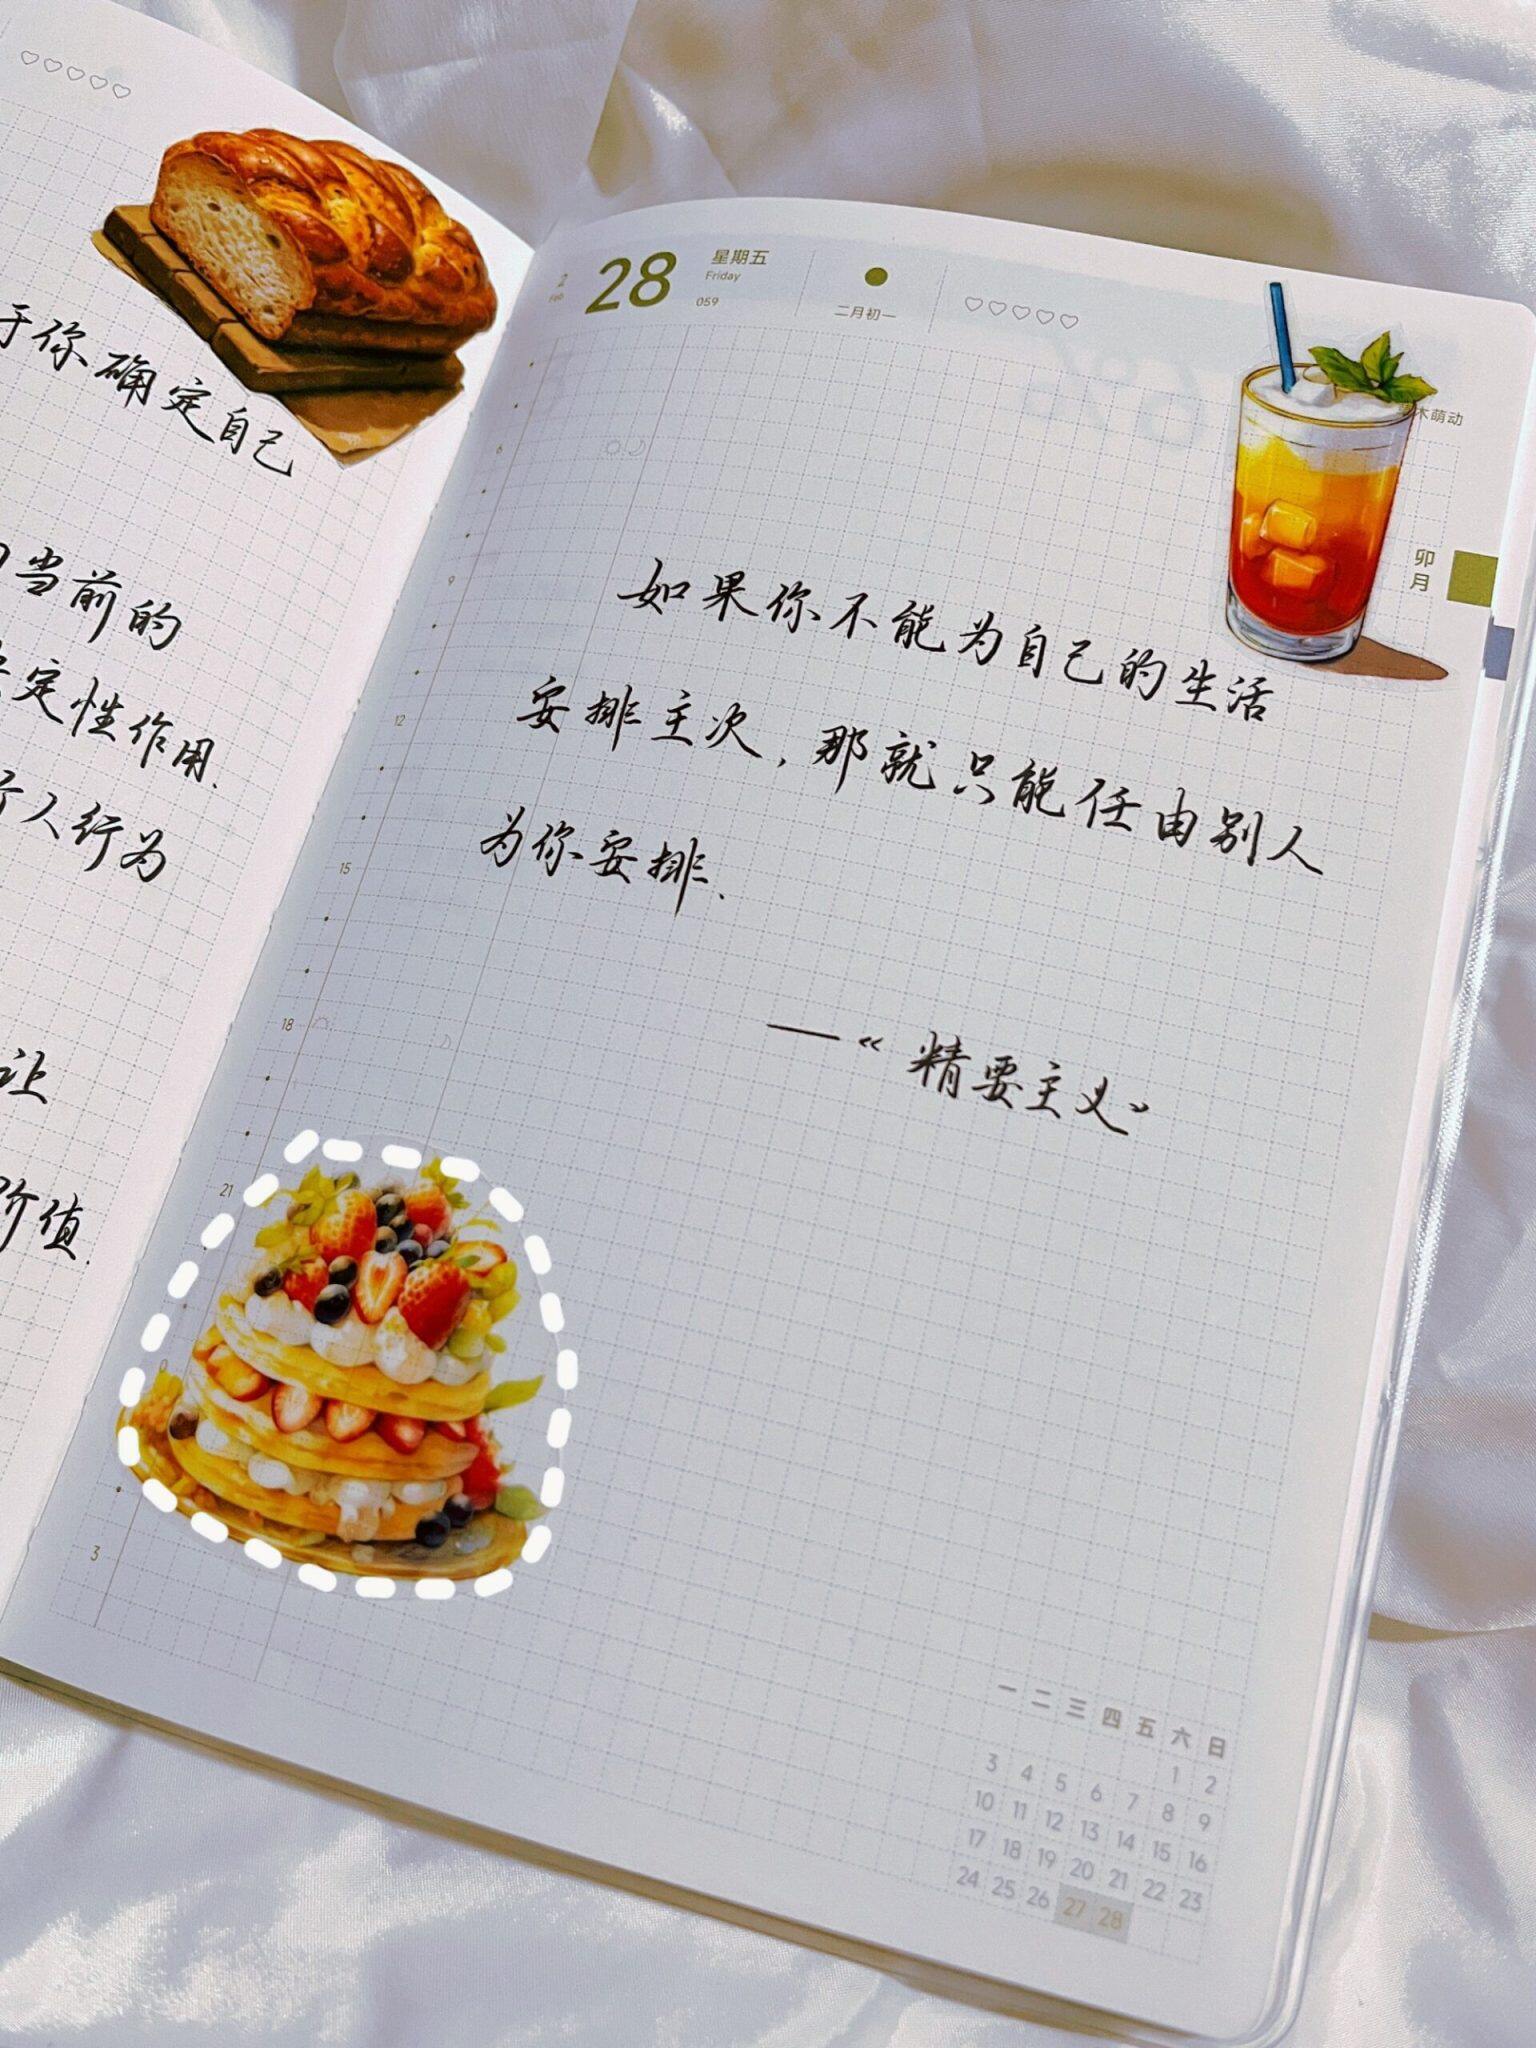 于你确定自己
当前的
定性作用.
个人行为
让
价值.
2
Feb
28
星期五
Friday
059
二月初一
木萌动
卯月
6
9
12
15
18
21
0
3
如果你不能为自己的生活
安排主次,那就只能任由别人
为你安排.
—《精要主义》
一 二 三 四 五 六 日
1 2
3 4 5 6 7 8 9
10 11 12 13 14 15 16
17 18 19 20 21 22 23
24 25 26 27 28